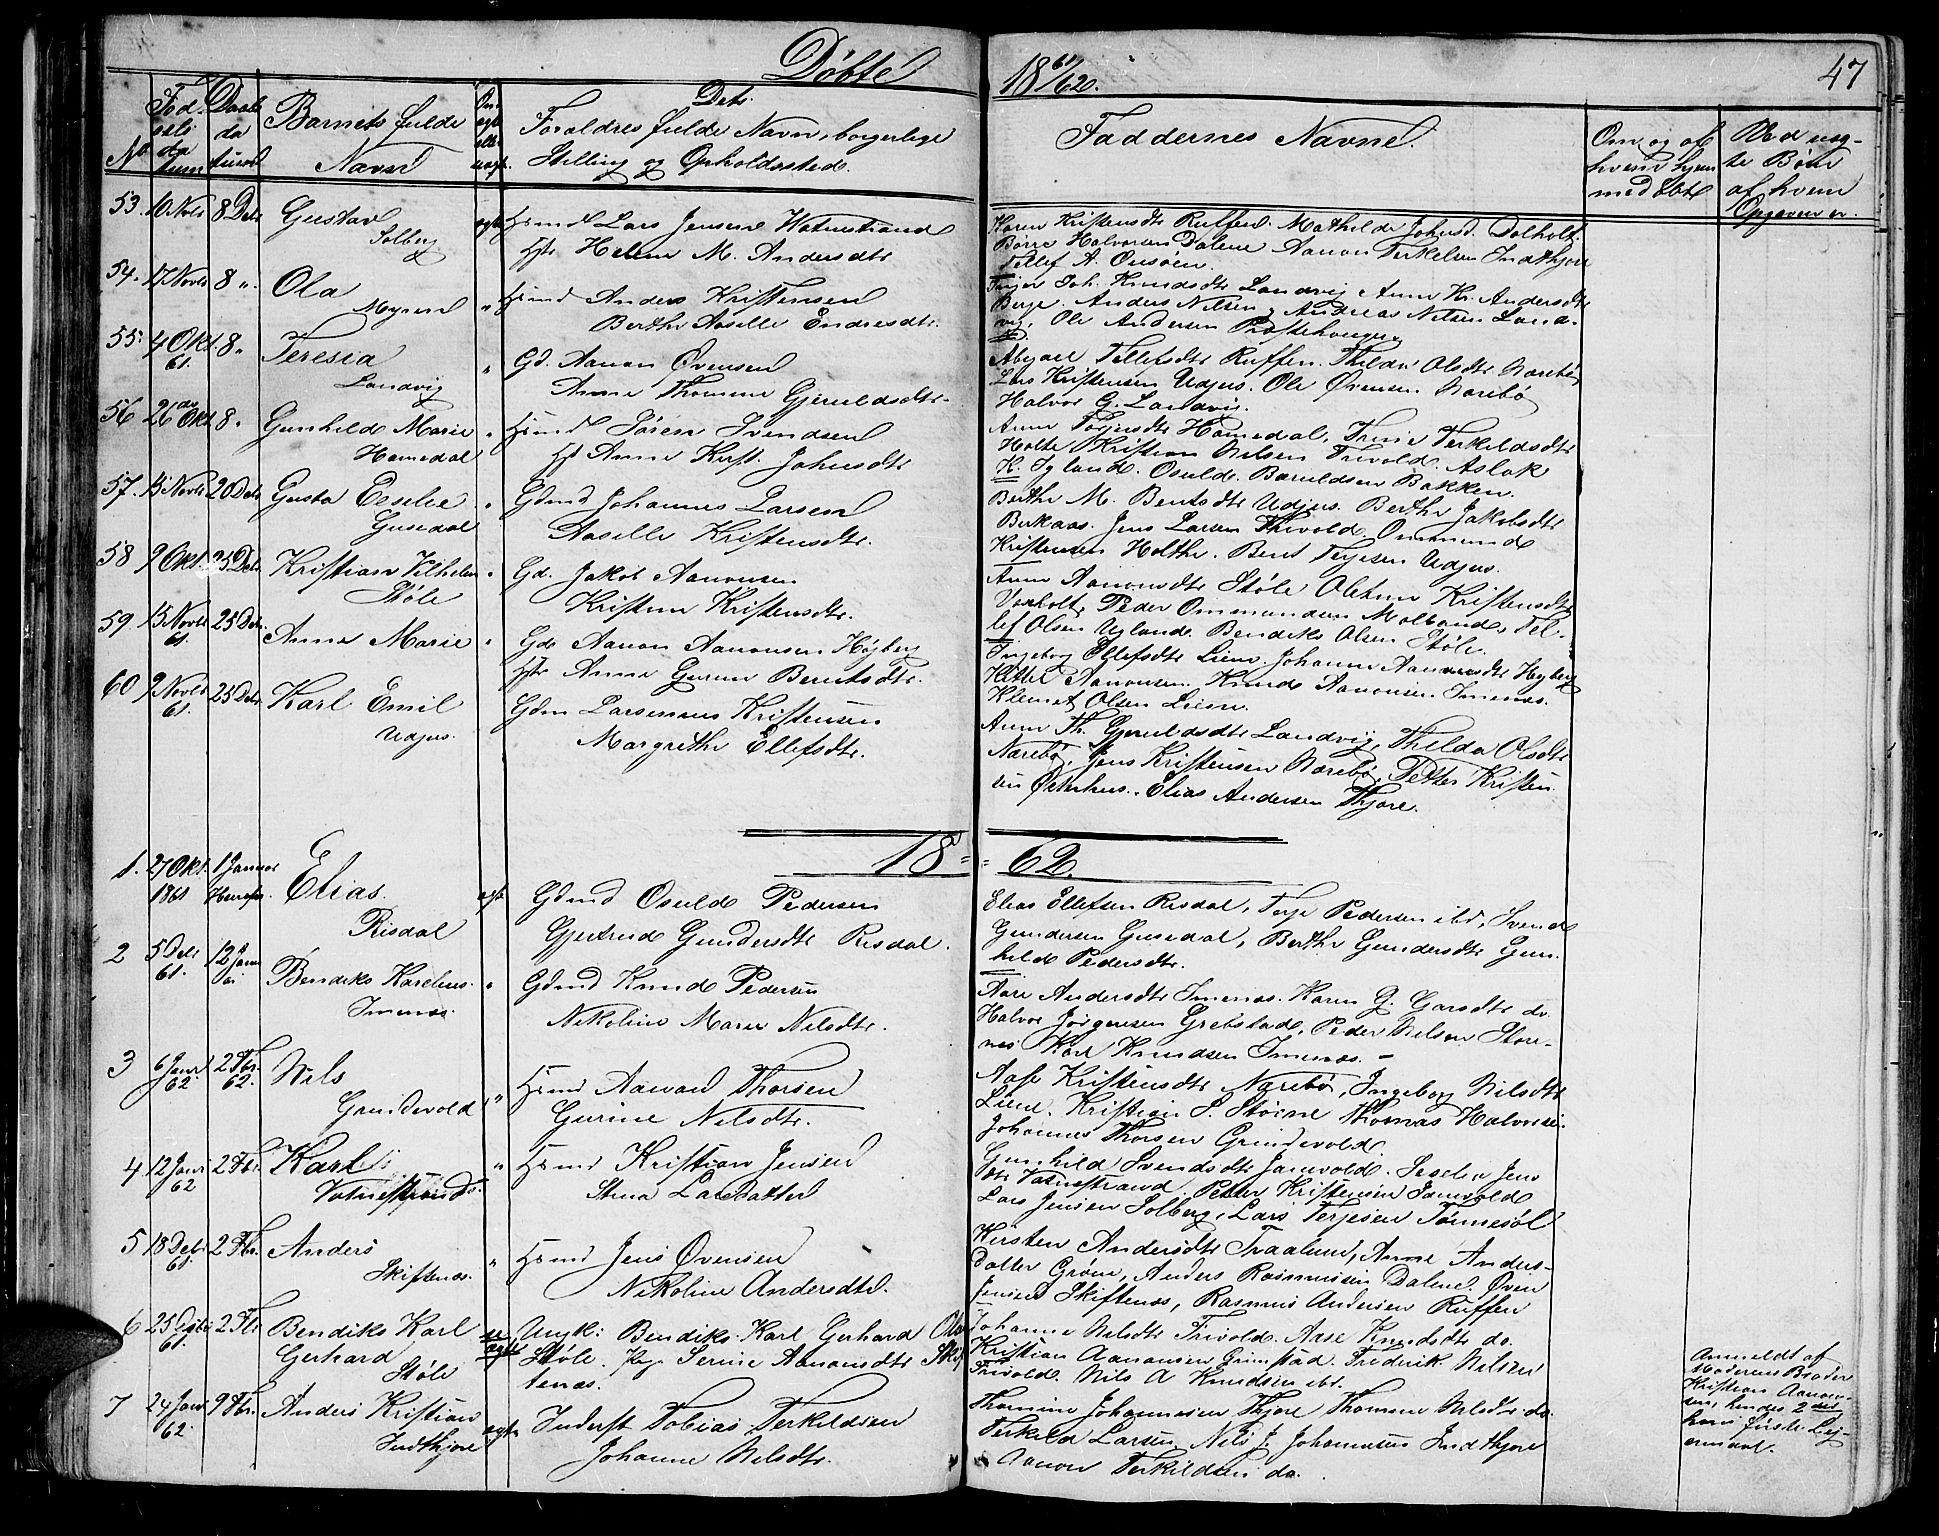 Döbte
18 61/62.
47
No
Fødselsdatum
Daabsdatum
Barnets fulde Navn
Om ægte eller uægte
Dets
Forældres fulde Navn, borgerlige
Stilling og Opholdssted.
Faddernes Navne.
Om og af hvem hjemmedøbt
Ved uægte Børn af hvem Opgaven er.
53. 10 Novbr 8 Dcbr Gustav Solberg ægte Hsmd Lars Jensen Vatnestrand
Hst Helene M. Andersdtr
Karen Kristensdtr Ruffen. Mathilde Johnsd. Dolholt.
Børre Halvorsen Dalene Aanon Terkelsen Indthjore
Tellef A. Ørsøen.
54. 17 Novbr 8 " Ola Myren " Hsmd Anders Kristensen
Berthe Aaselle Endresdtr.
Inger Joh. Knudsdtr Landvig Anne Kr. Andersdtr
Berge. Anders Nilsen, Andreas Nilsen Land-
vig, Ole Andersen Præstehougen
55. 4 Okt. 61. 8 " Teresia Landvig " Gd. Aanon Øvensen
Anne Thomine Gjeruldsdtr.
Abigael Tellefsdtr Ruffen. Thilda Olsdtr Narebø
Lars Kristensen Udjus. Ole Øvensen Narebø
Halvor G. Landvig.
56 26de Okt 8 " Gunhild Marie Homedal " Hsmd Søren Svendsen
Hst Anne Kirst. Johnsdtr
Anne Torjusdtr Homedal, Trine Terkildsdtr
Holte Kristian Nilsen Trivold. Aslak
K. Igland. Osuld Baruldsen Bakken.
57. 13 Novbr 20 Dcbr Gusta Ceselie Gusedal " Gdmd Johannes Larsen
Aaselle Kristensdtr.
Berthe M. Bentsdtr Udjus. Berthe Jakobsdtr
Berkaas. Jens Larsen Trivold. Ommund
Kristensen Holthe. Bent Terjesen Udjus.
58 9 Okt. 25 Dcbr. Kristian Vilhelm Støle " Gd. Jakob Aanonsen
Kristine Kristensdtr.
Anne Aanonsdtr Støle Oletine Kristensdtr
Voxholt, Peder Ommundsen Molland, Tel-
lef Olsen Ugland. Bendiks Olsen Støle.
59 15 Novbr 61. 25 Dcbr. Anne Marie " Gd Aanon Aanonsen Høgberg
Hst Anne Gurine Bentsdtr.
Ingeborg Ellefsdtr Liene Johanne Aanonsdtr Hegberg
Kittel Aanonsen. Knud Aanonsen Imenæs.
Klemet Olsen Liene.
60 9 Novbr 61. 25 Dcbr Karl Emil Udjus. Gdm Larsemius Kristensen
Margrethe Ellefsdtr.
Anne Th. Gjeruldsdtr Landvig, Thelda Olsdtr
Narebø, Jens Kristensen Narebø, Petter Kristen-
sen Østerhus. Elias Andersen Thjore.
18 = 62
1. 27 Okt. 1861 1 Januar Elias. Risdal ægte Gdmd Osuld Pedersen
Gjertrud Gundersdtr Risdal.
Elias Ellefsen Risdal, Terje Pedersen ibd, Svend
Gundersen Gusedal, Berthe Gundersdtr Gun-
hild Pedersdtr.
2 5 Dcbr 61. 12 Januar Bendiks Karelius. Imenæs. " Gdmd Knud Pedersen
Nikoline Marie Nilsdtr.
Aase Andersdtr Imenæs. Karen G. Garsdtr do.
Halvor Jørgensen Grebstad, Peder Nilsen Store-
nes Karl Knudsen Imenæs. -
3 6 Janr 62. 2 Fbr. 62. Nils Grundevold " Hsmd Aanon Thorsen
Gurine Nilsdtr.
Aase Kristensdtr Narebø, Ingeborg Nilsdtr
Liene. Kristian S. Støine Thomas Halvorsen
Johannes Thorsen Grindevold.
4 12 Janr 62 2 Fbr. Karl Vatnestrand. " Hsmd Kristian Jensen
Stina Larsdatter
Gunhild Svendsdtr Jomvold. Seselie Jens
dtr Vatnestrand Peter Kristensen Jomvold
Lars Jensen Solberg, Lars Terjesen Tønnesøl
5 18 Dcbr 61. 2 Fbr. Anders Skiftenæs. " Hsmd Jens Øvensen
Nikoline Andersdtr.
Kirsten Andersdtr Traalum, Anne Anders-
datter Grøm, Anders Rasmussen Dalene. Øven
Jensen Skiftenæs, Rasmus Andersen Ruffen
6 25 Dcbr 61. 2 Fbr Bendiks Karl Gerhard Støle uægte Ungk: Bendiks Karl Gerhard
Støle. Pige Serine Aanonsdtr Skif-
tenæs.
Johanne Nilsdtr Trivold. Aase Knudsdtr do.
Kristian Aanonsen Grimstad. Frederik Nilsen
Trivold. Nils A Knudsen ibd.
Anmeldt af
Moderens Broder
Kristian Aanon-
sen, hendes 2det
hans første Lej-
ermaal.
7 24 Janr 62. 9 Fbr. Anders Kristian Indthjore ægte Inderst Tobias Terkildsen
Johanne Nilsdtr.
Thomine Johannesen Thjore Thomine Nilsdtr do.
Terkild Larsen, Nils J. Johannesen Indthjore
Aanon Terkildsen do.